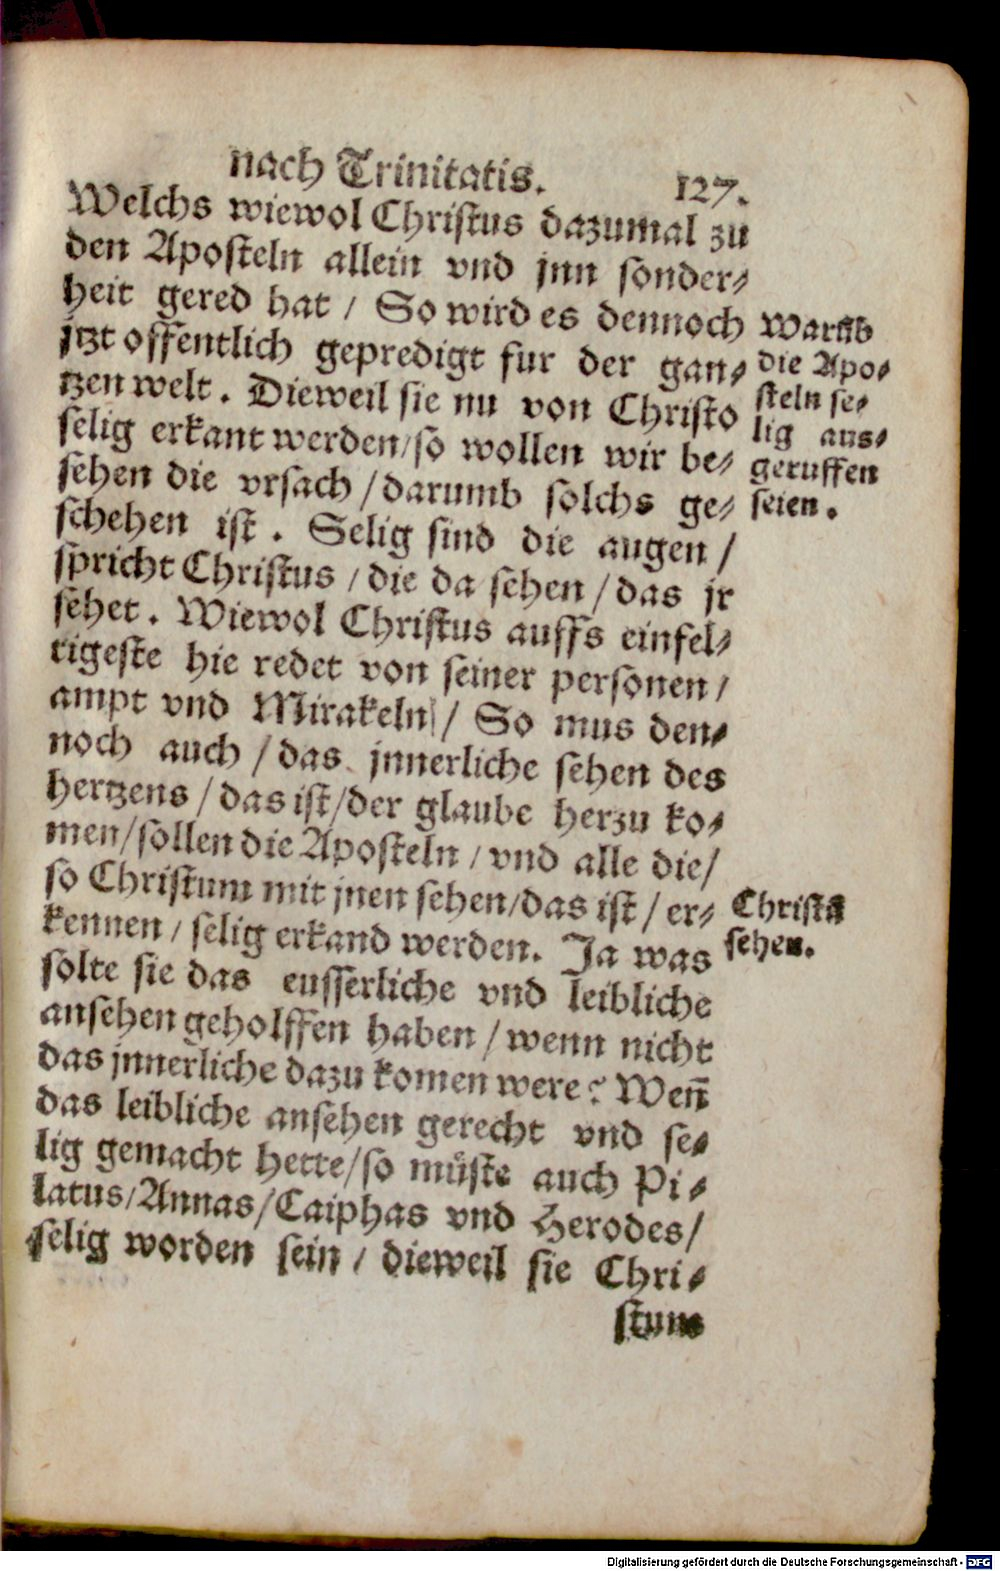 nach Trinitatis. 127.
Welchs wiewol Christus dazumal zu
den Aposteln allein vnd jnn sonder⸗
heit gered hat / So wird es dennoch
jtzt offentlich gepredigt fur der gan⸗
tzen welt. Dieweil sie nu von Christo
selig erkant werden/so wollen wir be⸗
sehen die vrsach /darumb solchs ge⸗
schehen ist. Selig sind die augen /
spricht Christus / die da sehen / das jr
sehet. Wiewol Christus auffs einfel⸗
tigeste hie redet von seiner personen /
ampt vnd Mirakeln / So mus den⸗
noch auch / das jnnerliche sehen des
hertzens / das ist/der glaube herzu ko⸗
men/sollen die Aposteln / vnd alle die/
so Christum mit jnen sehen/das ist / er⸗
kennen / selig erkand werden. Ja was
solte sie das eusserliche vnd leibliche
ansehen geholffen haben / wenn nicht
das jnnerliche dazu komen were? Weñ
das leibliche ansehen gerecht vnd se⸗
lig gemacht hette/so müste auch Pi⸗
latus/Annas/Caiphas vnd Herodes/
selig worden sein / dieweil sie Chri⸗
stum
Warūb
die Apo⸗
steln se⸗
lig aus⸗
geruffen
seien.
Christū
sehen.
Digitalisierung gefördert durch die Deutsche Forschungsgemeinschaft - DFG